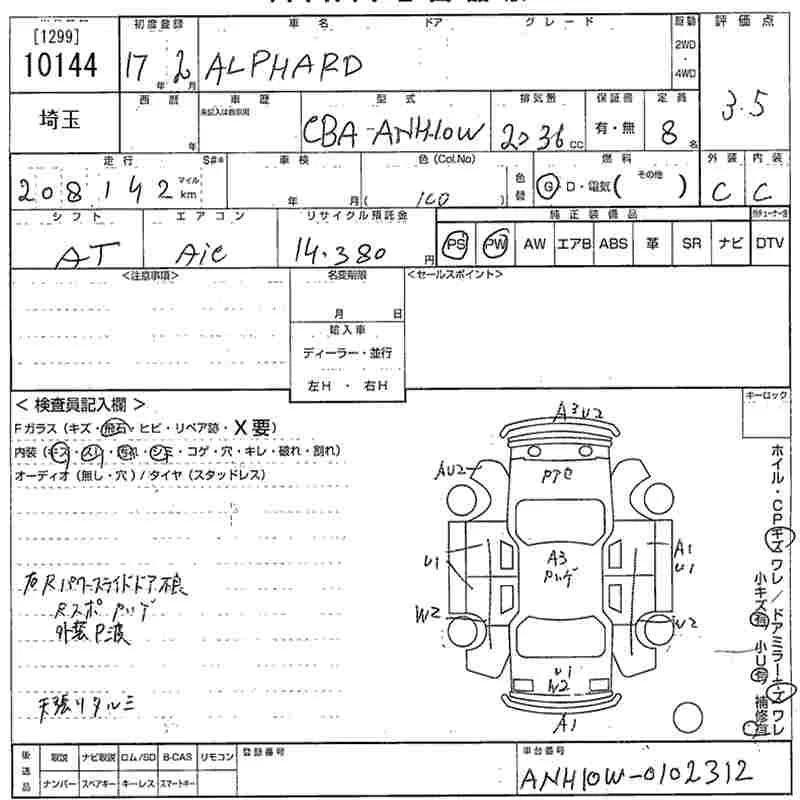 [1299]
10144
初度登録
17年 2月
車名 ドア グレード
ALPHARD
駆動
2WD
・
4WD
評価点
3.5
埼玉
西暦
年
車歴
未記入は自家用
型式
CBA-ANH10W
排気量
2036cc
保証書
有・無
定員
8名
走行 S#*
208142 マイル km
車検
年 月
色 (Col.No)
( 160 )
色替
燃料
G・D・電気( その他 )
外装
C
内装
C
シフト
AT
エアコン
A/C
リサイクル預託金
14.380円
純正装備品
PS PW AW エアB ABS 革 SR ナビ DTV
<注意事項>
名変期限
月 日
輸入車
ディーラー・並行
左H ・ 右H
<セールスポイント>
< 検査員記入欄 >
Fガラス (キズ・飛石・ヒビ・リペア跡・X要)
内装 (キズ・スリ・汚れ・シミ・コゲ・穴・キレ・破れ・割れ)
オーディオ (無し・穴) / タイヤ (スタッドレス)
右Rパワースライドドア不良
Rスポ ハゲ
外装P波
天張りタルミ
キーロック
A3 U2
AU2
PアC
U1
A3
ハゲ
A1
U1
W2
W2
U1
W2
A1
ホイル・CPキズ ワレ / ドアミラーキズ ワレ
小キズ有 小U有 補修有
後送品
取説 ナビ取説 ロム/SD B-CAS リモコン
ナンバー スペアキー キーレス スマートキー
登録番号
車台番号
ANH10W-0102312